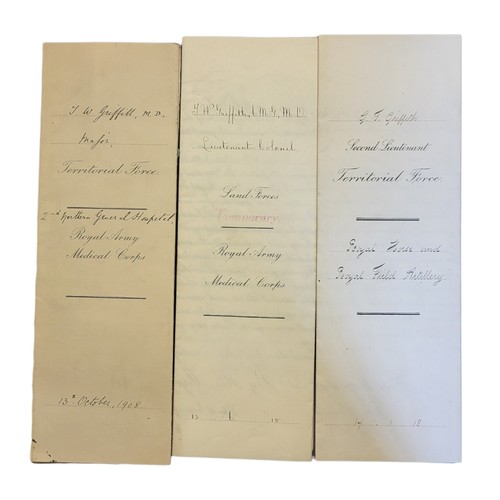 T W Griffith, M.D.
Major,
Territorial Force.
2nd Northern General Hospital.
Royal Army
Medical Corps
13th October, 1908
T W Griffith, C.M.G, M.D
Lieutenant Colonel
Land Forces
Temporary.
Royal Army
Medical Corps
G. T. Griffith
Second Lieutenant
Territorial Force
Royal Horse and
Royal Field Artillery